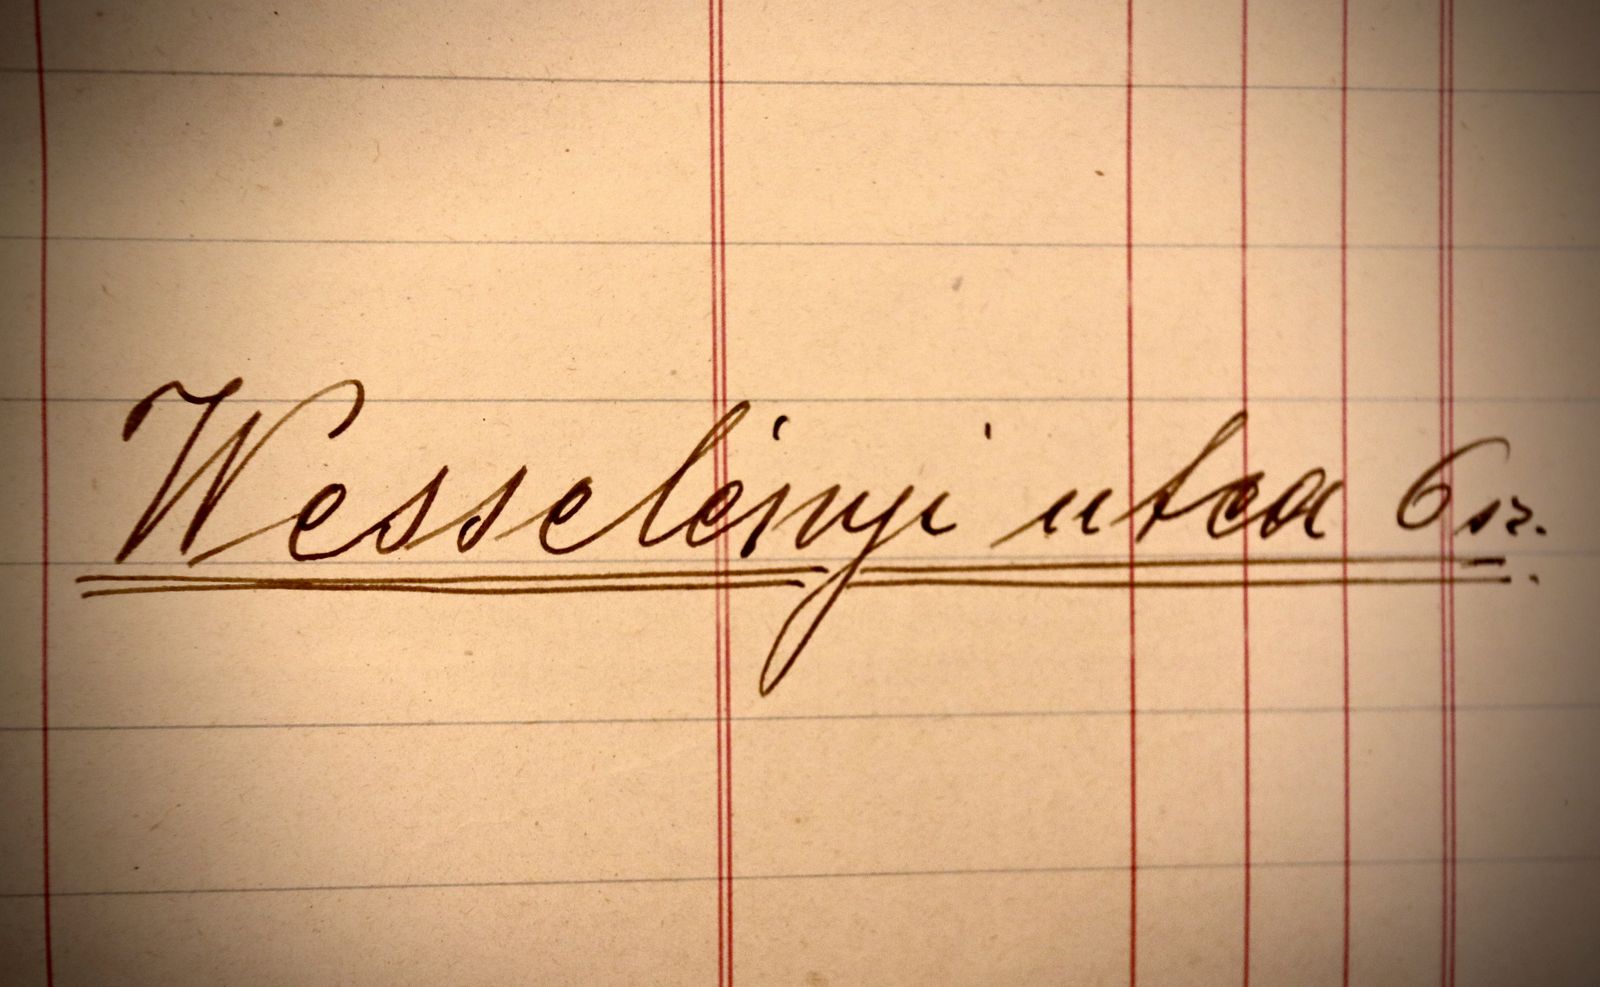 Wesselényi utca 6 sz.